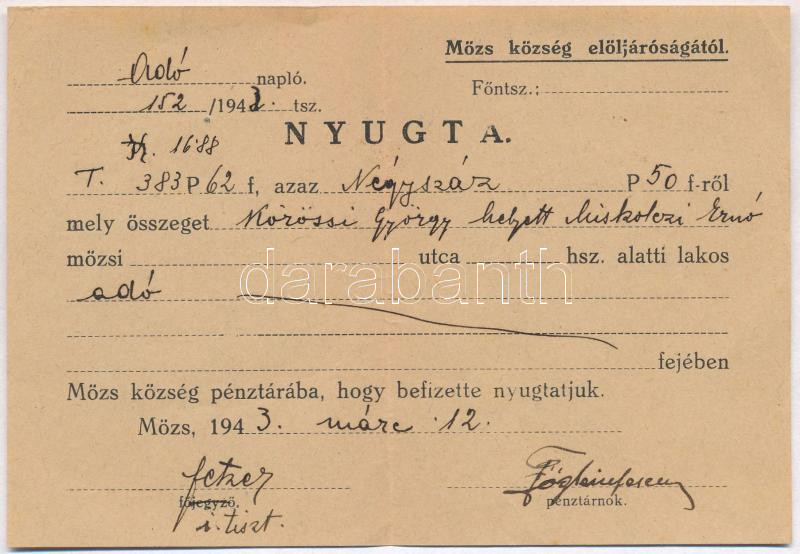 Mözs község elöljáróságától.
Adó napló.
Főntsz.:
152 /1943. tsz.
NYUGTA.
16·88
T. 383 P 62 f, azaz Négyszáz P 50 f-ről
mely összeget Körössi György helyett Miskolczi Ernő
mözsi utca hsz. alatti lakos
adó
darabanth
fejében
Mözs község pénztárába, hogy befizette nyugtatjuk.
Mözs, 1943. márc. 12.
főjegyző.
i. tiszt.
pénztárnok.